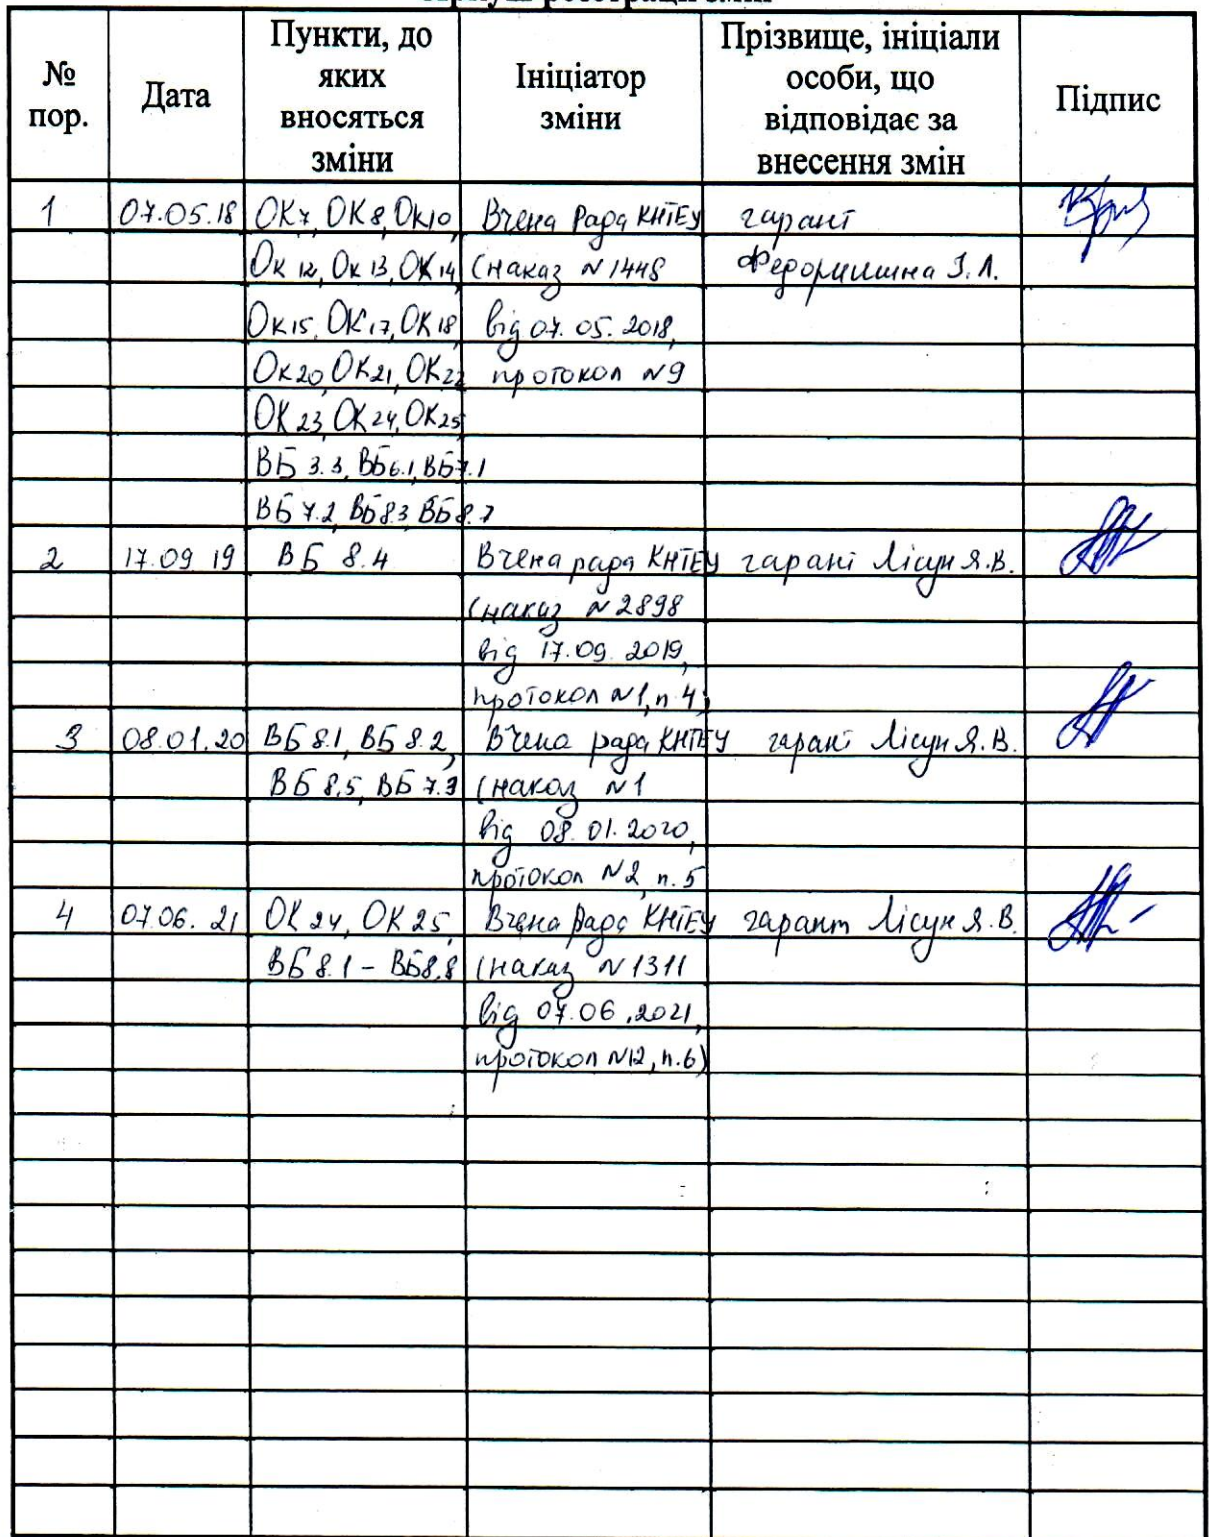 № пор. Дата Пункти, до яких вносяться зміни Ініціатор зміни Прізвище, ініціали особи, що відповідає за внесення змін Підпис
1 07.05.18 ОК7, ОК8, ОК10, Вчена Рада КНТЕУ гарант
ОК 12, ОК 13, ОК 14 (наказ №1448 Федоришина І. Л.
ОК15, ОК17, ОК 18, від 07.05.2018,
ОК20, ОК21, ОК22 протокол №9
ОК 23, ОК 24, ОК25
ВБ 3.3, ВБ6.1, ВБ7.1
ВБ 7.2, ВБ8.3, ВБ8.7
2 17.09 19 ВБ 8.4 Вчена рада КНТЕУ гарант Лісун Я.В.
(наказ №2898
від 17.09.2019,
протокол №1, п.4)
3 08.01.20 ВБ 8.1, ВБ 8.2, Вчена рада КНТЕУ гарант Лісун Я.В.
ВБ 8.5, ВБ 7.3 (наказ №1
від 08.01.2020,
протокол №2, п.5
4 07.06.21 ОК 24, ОК 25, Вчена Рада КНТЕУ гарант Лісун Я.В.
ВБ 8.1 - ВБ8.8 (наказ №1311
від 07.06.2021,
протокол №12, п.6)